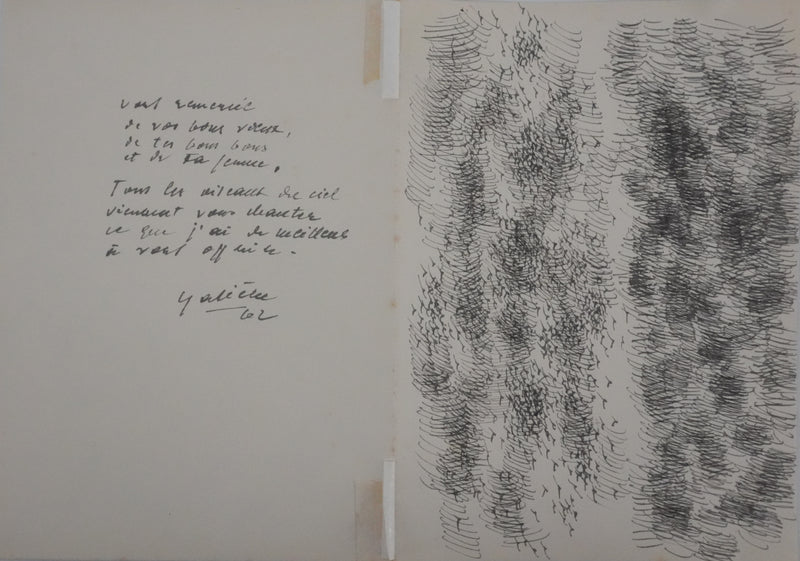 vous remercie
de vos bons vœux,
de tes bons bons
et de ta femme.
Tous les oiseaux du ciel
viennent vous chanter
ce que j'ai de meilleur
à vous offrir.
62